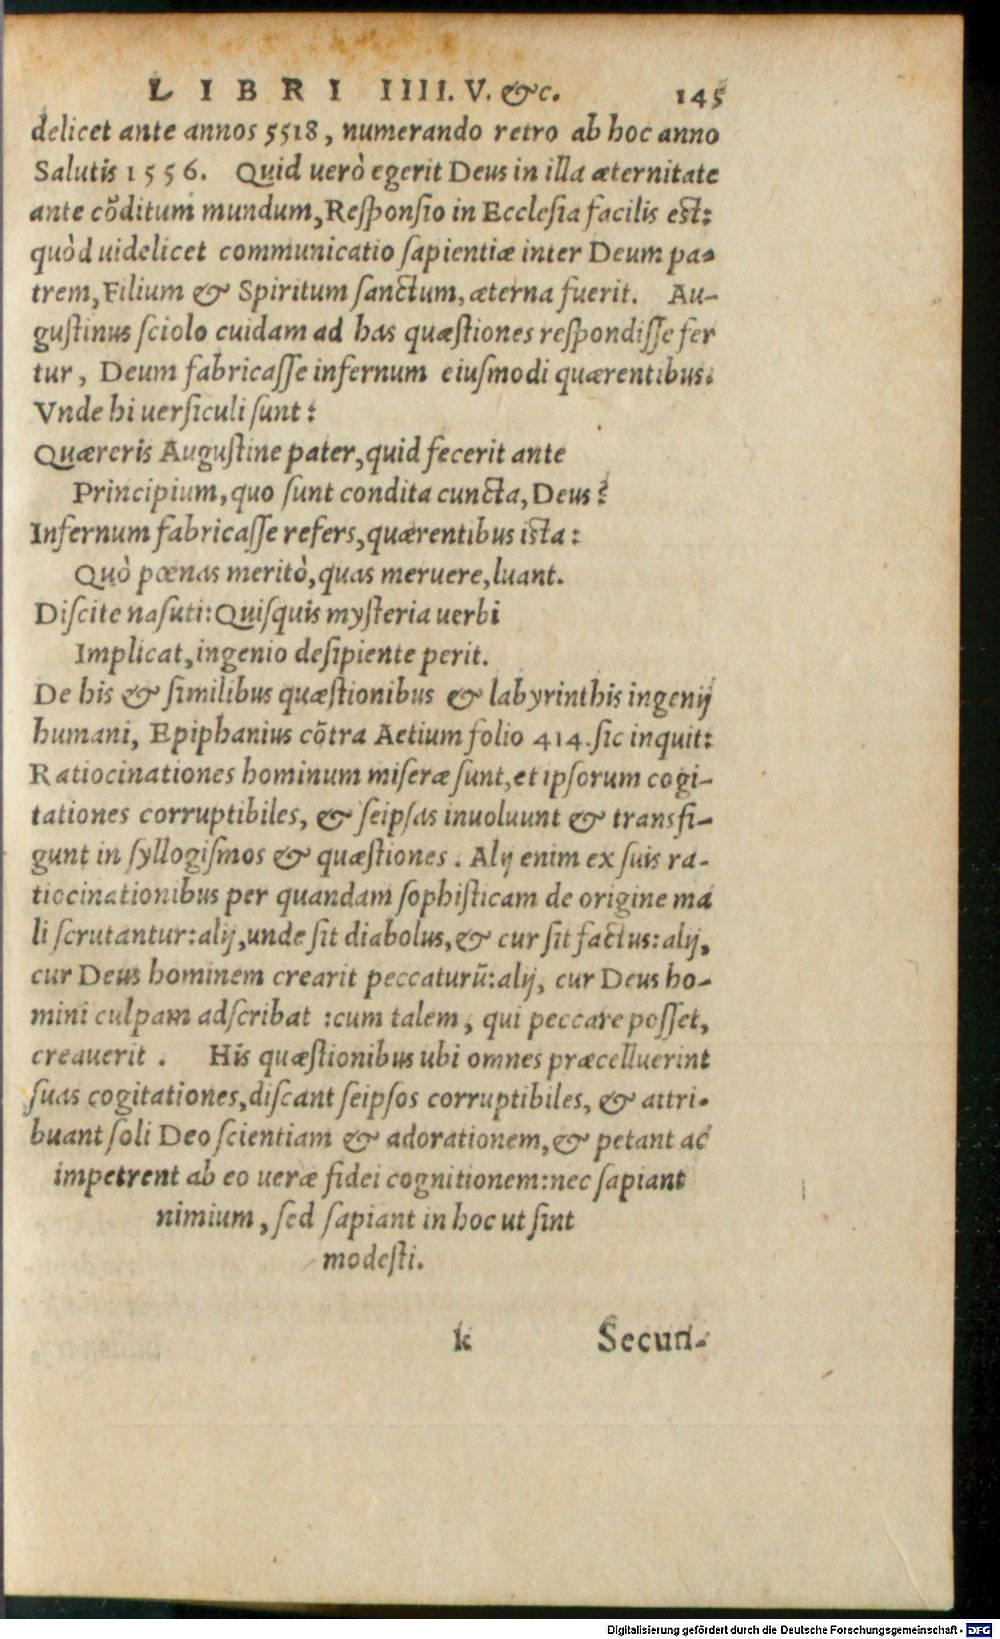 LIBRI IIII. V. &c. 145
delicet ante annos 5518, numerando retro ab hoc anno
Salutis 1556. Quid uerò egerit Deus in illa æternitate
ante cõditum mundum, Responsio in Ecclesia facilis est:
quòd uidelicet communicatio sapientiæ inter Deum pa-
trem, Filium & Spiritum sanctum, æterna fuerit. Au-
gustinus sciolo cuidam ad has quæstiones respondisse fer
tur, Deum fabricasse infernum eiusmodi quærentibus.
Vnde hi uersiculi sunt:
Quæreris Augustine pater, quid fecerit ante
Principium, quo sunt condita cuncta, Deus?
Infernum fabricasse refers, quærentibus ista:
Quò pœnas meritò, quas meruere, luant.
Discite nasuti: Quisquis mysteria uerbi
Implicat, ingenio desipiente perit.
De his & similibus quæstionibus & labyrinthis ingenij
humani, Epiphanius cõtra Aetium folio 414. sic inquit:
Ratiocinationes hominum miseræ sunt, et ipsorum cogi-
tationes corruptibiles, & seipsas inuoluunt & transfi-
gunt in syllogismos & quæstiones. Alij enim ex suis ra-
tiocinationibus per quandam sophisticam de origine ma
li scrutantur: alij, unde sit diabolus, & cur sit factus: alij,
cur Deus hominem crearit peccaturũ: alij, cur Deus ho-
mini culpam adscribat : cum talem, qui peccare posset,
creauerit . His quæstionibus ubi omnes præcelluerint
suas cogitationes, discant seipsos corruptibiles, & attri-
buant soli Deo scientiam & adorationem, & petant ac
impetrent ab eo ueræ fidei cognitionem: nec sapiant
nimium, sed sapiant in hoc ut sint
modesti.
k Secun-
Digitalisierung gefördert durch die Deutsche Forschungsgemeinschaft - DFG